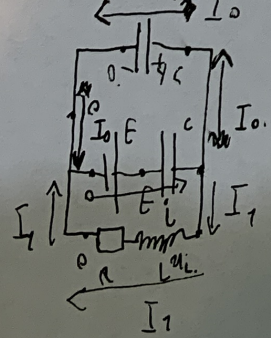 I₀
C
I₀ E C I₀
E i
I₁ I₁
R L uᵢ
I₁